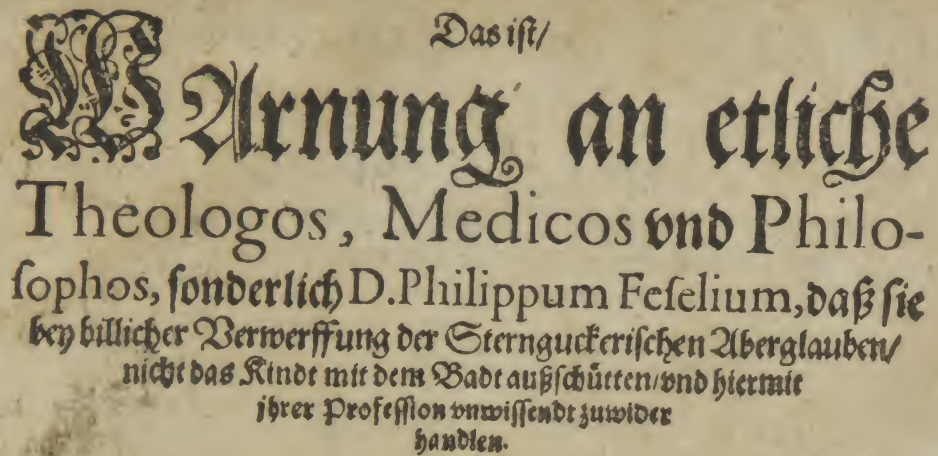 Das ist/
WArnung an etliche
Theologos, Medicos vnd Philo-
sophos, sonderlich D. Philippum Feselium, daß sie
bey billicher Verwerffung der Sternguckerischen Aberglauben/
nicht das Kindt mit dem Badt außschütten/vnd hiermit
jhrer Profession vnwissendt zuwider
handlen.